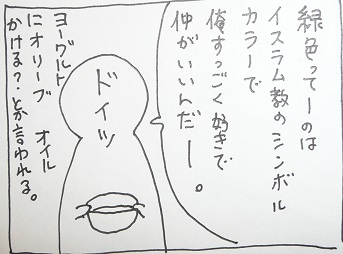 緑色ってーのは
イスラム教のシンボル
カラーで
俺すっごく好きで
仲がいいんだー。
ドイツ
ヨーグルト
にオリーブ オイル
かける?とか言われる。